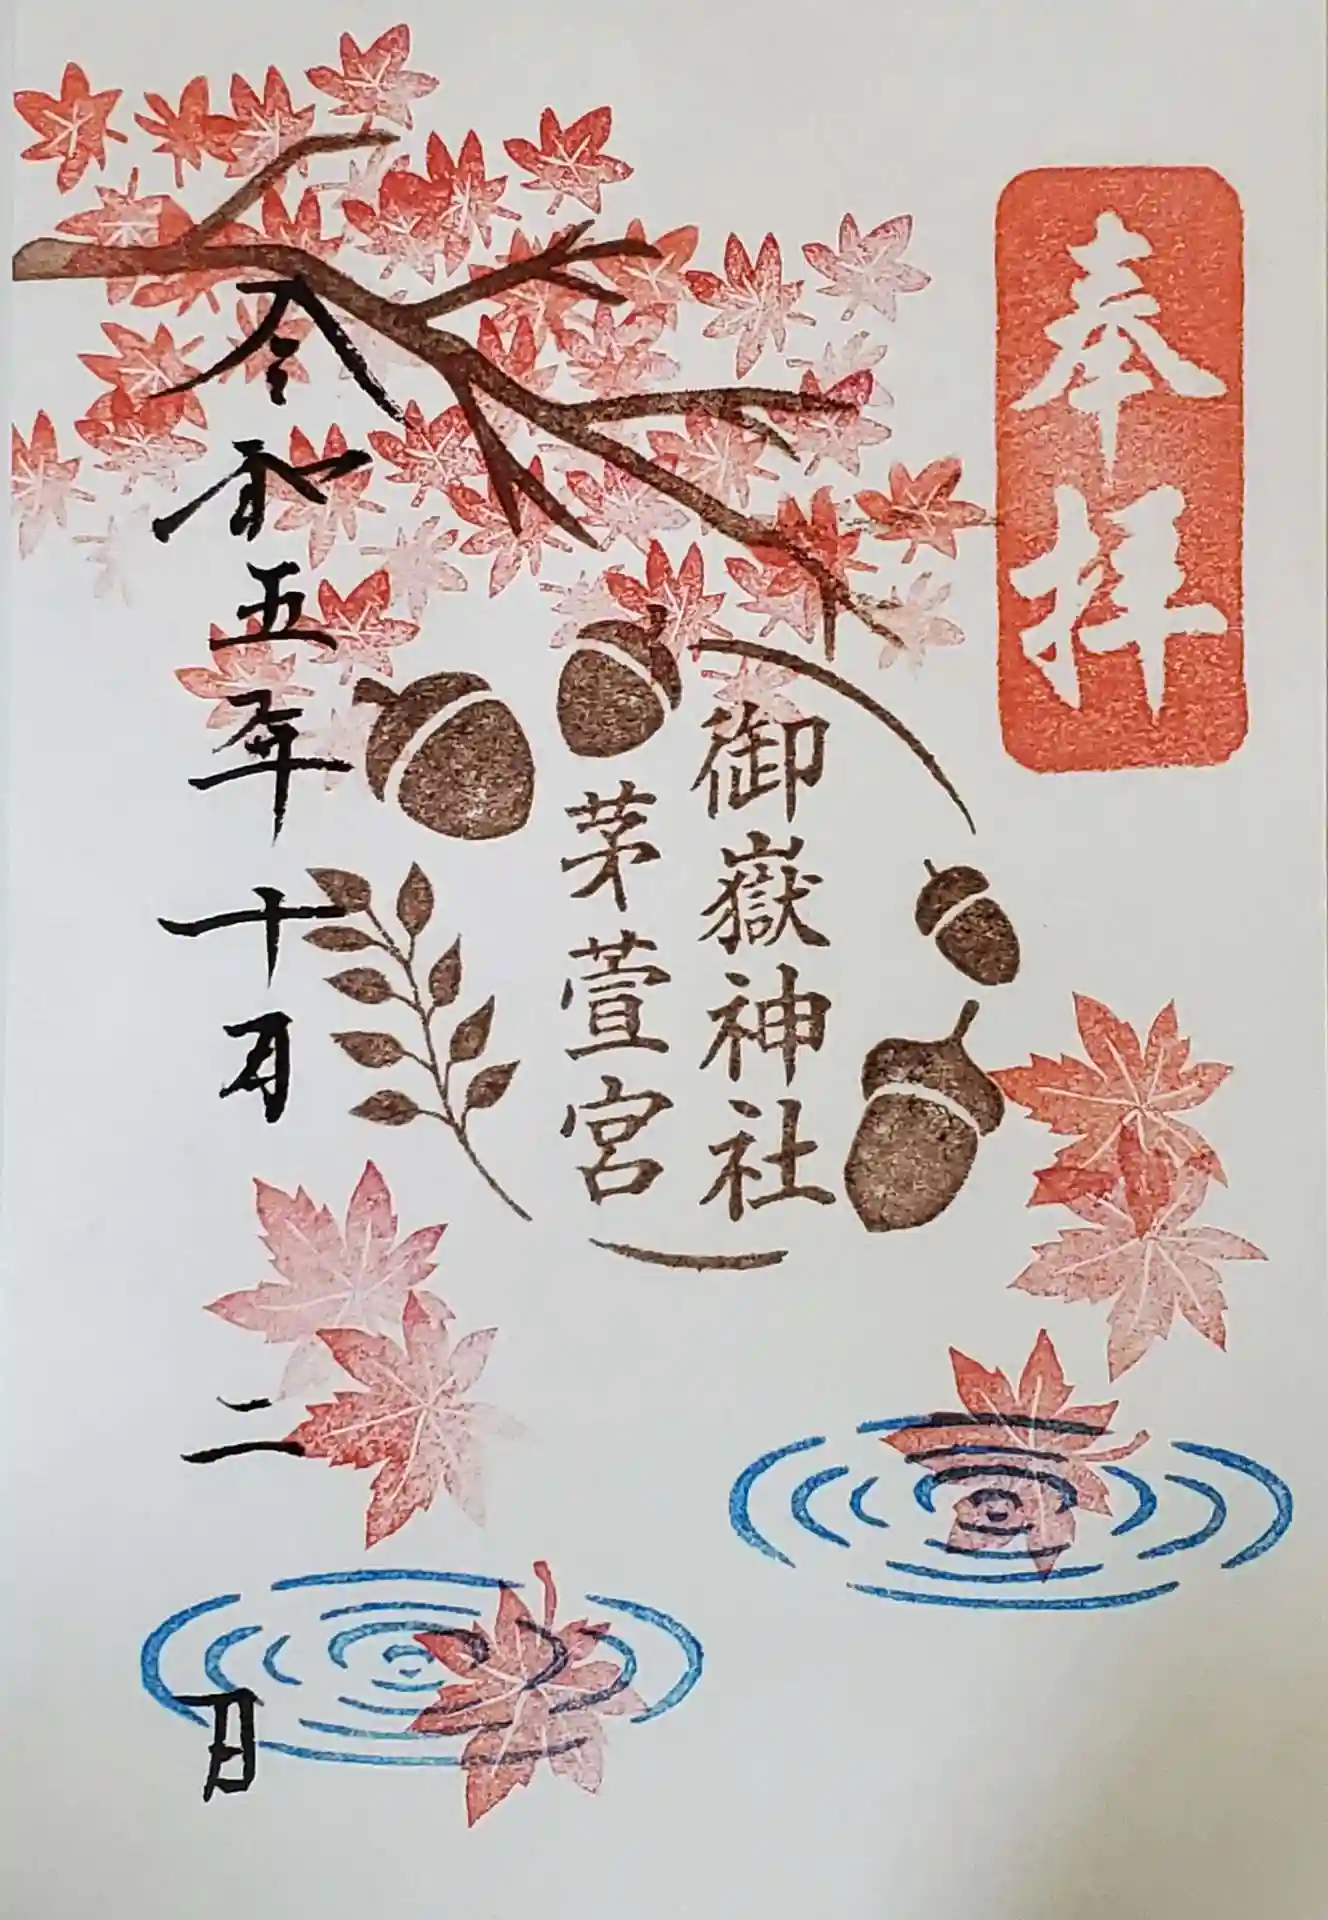 奉拝
御嶽神社
茅萱宮
令和五年十月二日